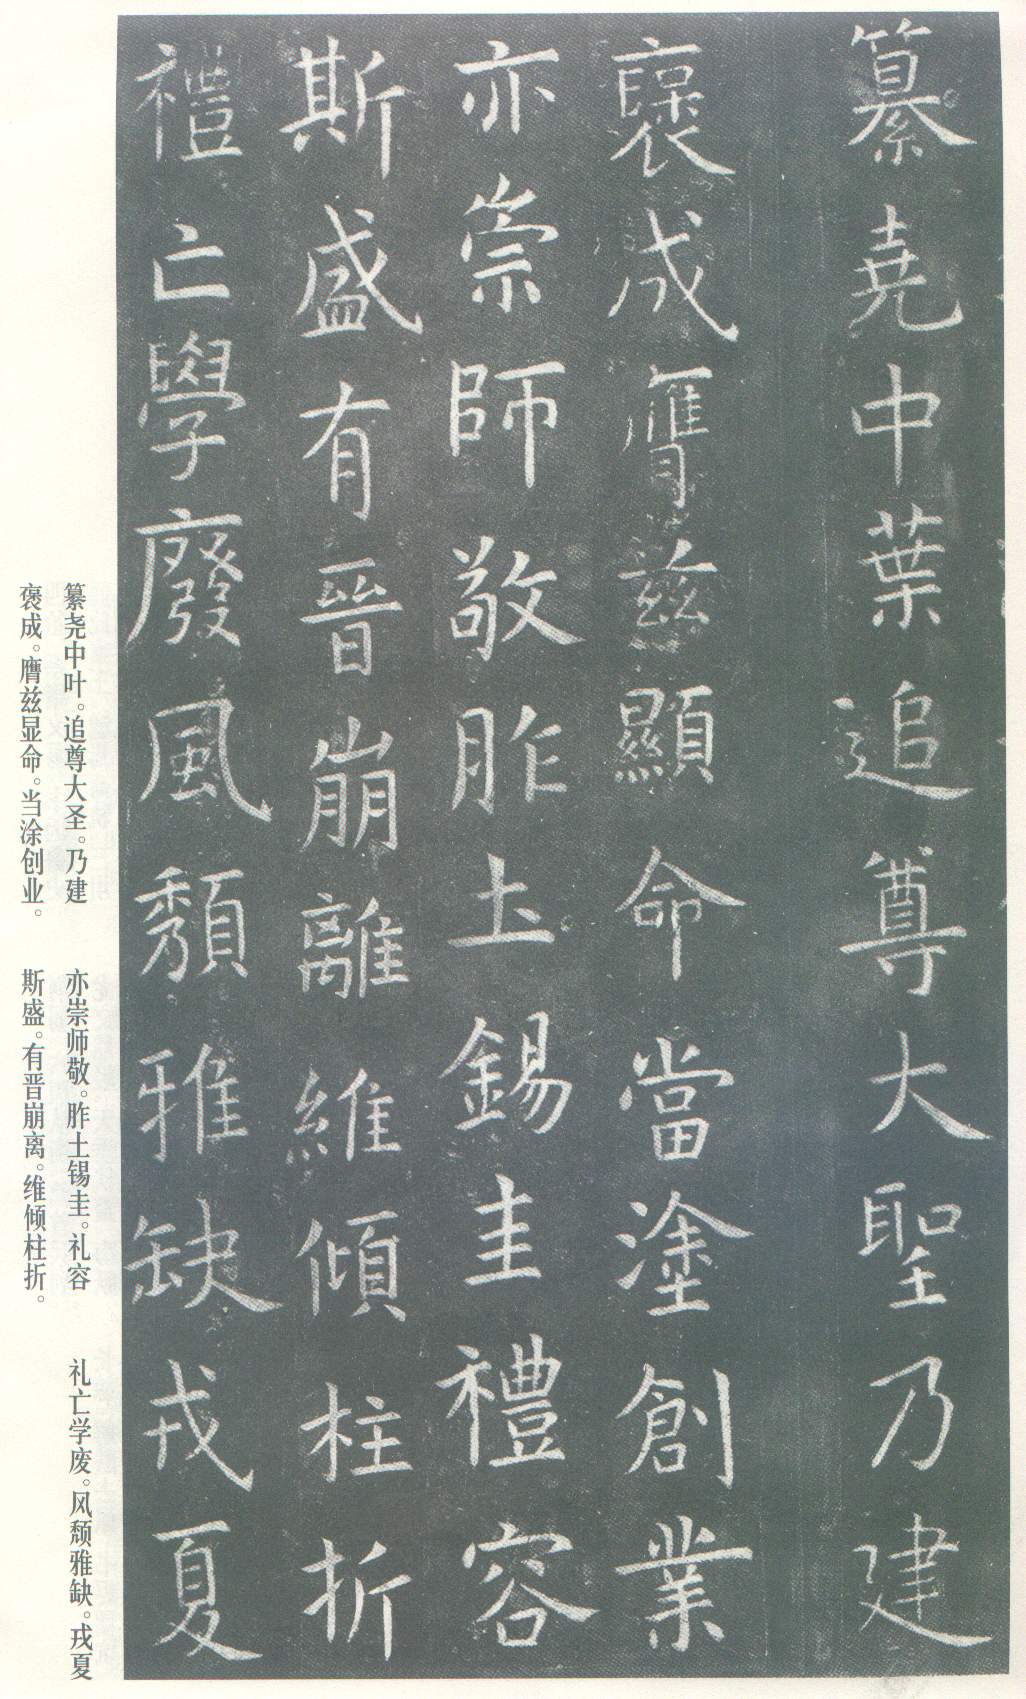 纂堯中葉追尊大聖乃建
褒成膺兹顯命當塗創業
亦崇師敬胙土錫圭禮容
斯盛有晉崩離維傾柱折
禮亡學廢風頹雅缺戎夏
纂尧中叶。追尊大圣。乃建
褒成。膺兹显命。当涂创业。
亦崇师敬。胙土锡圭。礼容
斯盛。有晋崩离。维倾柱折。
礼亡学废。风颓雅缺。戎夏